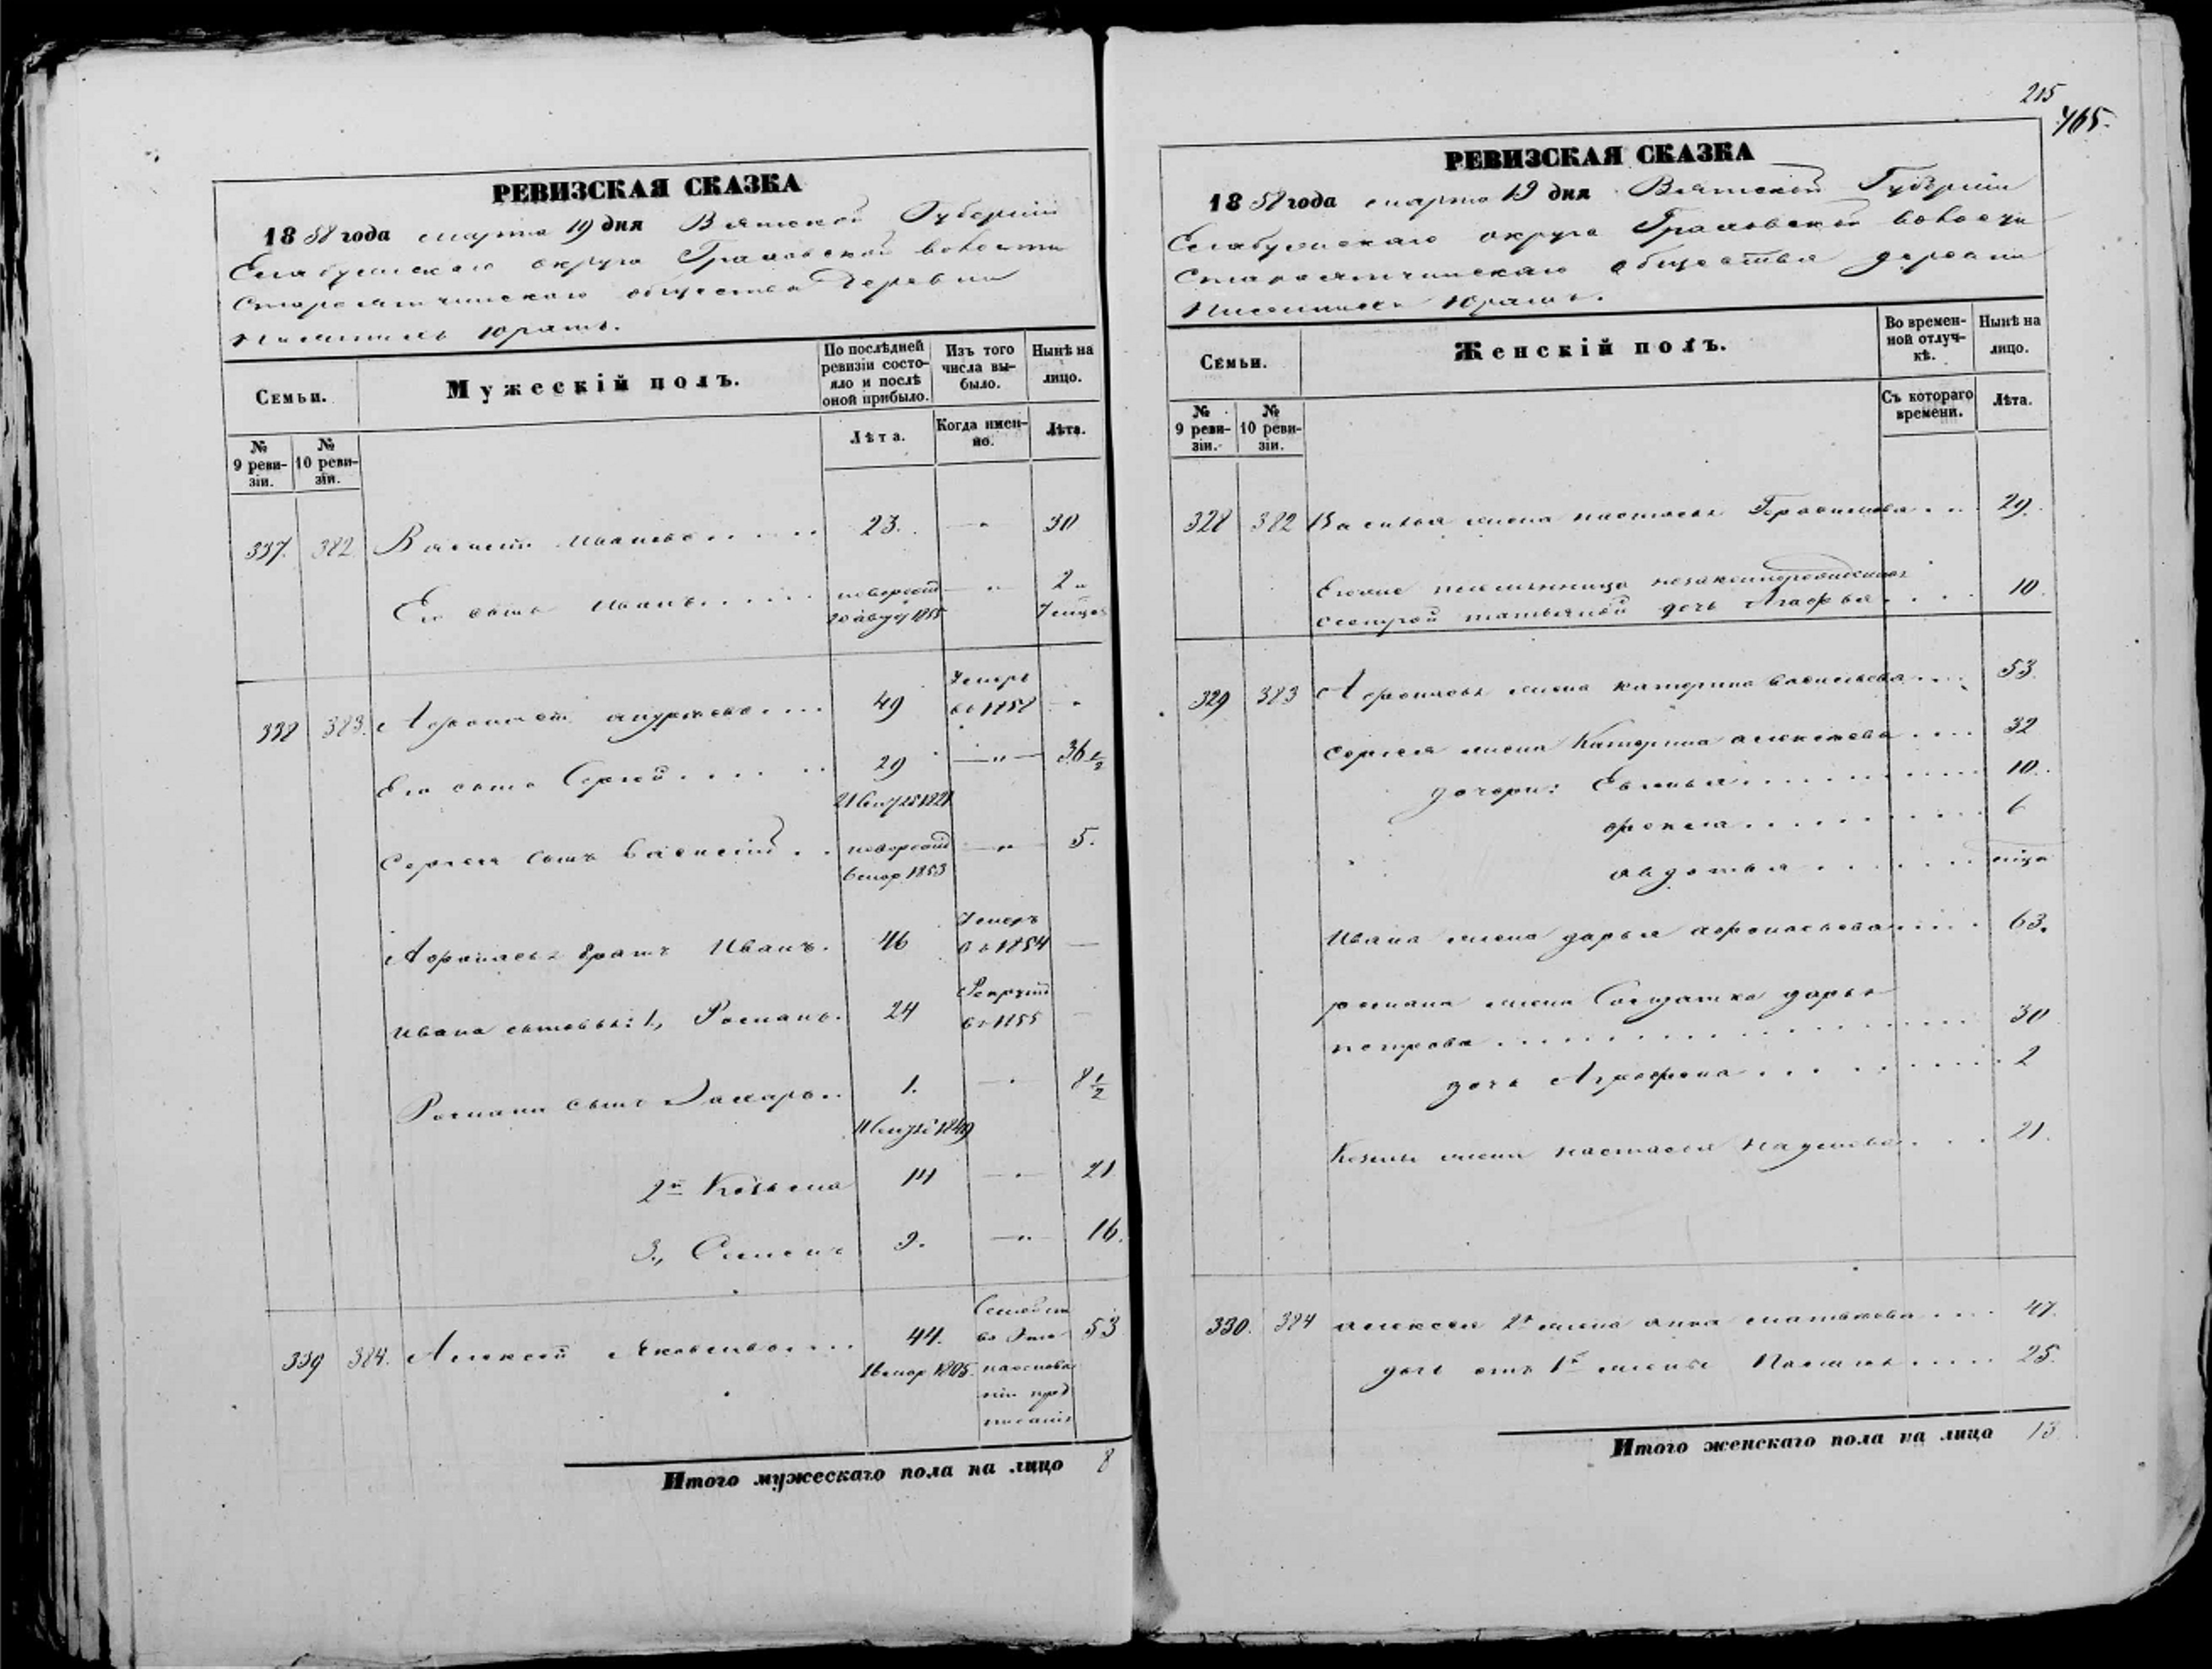 РЕВИЗСКАЯ СКАЗКА
1858 года марта 19 дня Вятской Губерніи
Елабужскаго округа Граховской волости
Староятчинскаго общества деревни
Юрашъ.
Семьи.
Мужескій полъ.
По послѣдней ревизіи состояло и послѣ оной прибыло.
Изъ того числа выбыло.
Нынѣ на лицо.
№ 9 ревизіи.
№ 10 ревизіи.
Лѣта.
Когда именно.
Лѣта.
337. 382. Василій Ивановъ..... 23. — " 30
Его сынъ Иванъ..... новорожд — " 2 "
20 август 1855 7 мцов
338 383. Афонасей.... 49 Умеръ въ 1858 "
Его сынъ Сергей..... 29 — " — 36 1/2
1821
Сергея сынъ Василій.. новорожд — " — 5.
6 мар 1853
Афонасья братъ Иванъ. 46 Умеръ въ 1854 —
Ивана сыновья: 1., Романъ. 24 Рекрут въ 1855 —
Романа сынъ Захаръ.. 1. — " — 8 1/2
1849
2й Козьма 14 — " — 21
3., Семенъ 9. — " — 16.
339 384. Алексей Яковлевъ.... 44. 53
16 мар 1805.
Итого мужескаго пола на лицо 8
215
465.
РЕВИЗСКАЯ СКАЗКА
1858 года марта 19 дня Вятской Губерніи
Елабужскаго округа Граховской волости
Староятчинскаго общества деревни
Юрашъ.
Семьи.
Женскій полъ.
Во временной отлучкѣ.
Нынѣ на лицо.
№ 9 ревизіи.
№ 10 ревизіи.
Съ котораго времени.
Лѣта.
328 382 Василья жена Настасья Герасимова... 29.
Егоже племянница незаконнорожденная
сестрой Татьяной дочь Агафья.... 10
329 383 Афонасья жена Катерина Васильева.... 53
Сергея жена Катерина Алексеева.... 32
дочери: Евгенья.......... 10.
Фекла.......... 6
Авдотья....... мцо
Ивана жена Дарья Афонасьева.... 63.
Романа жена Солдатка Дарья
Петрова.................. 30
дочь Аграфена.......... 2
Козьмы жена Настасья Наумова.... 21.
330. 384 Алексея 2я жена Анна Матвеева.... 47.
дочь отъ 1й жены..... 25.
Итого женскаго пола на лицо 13